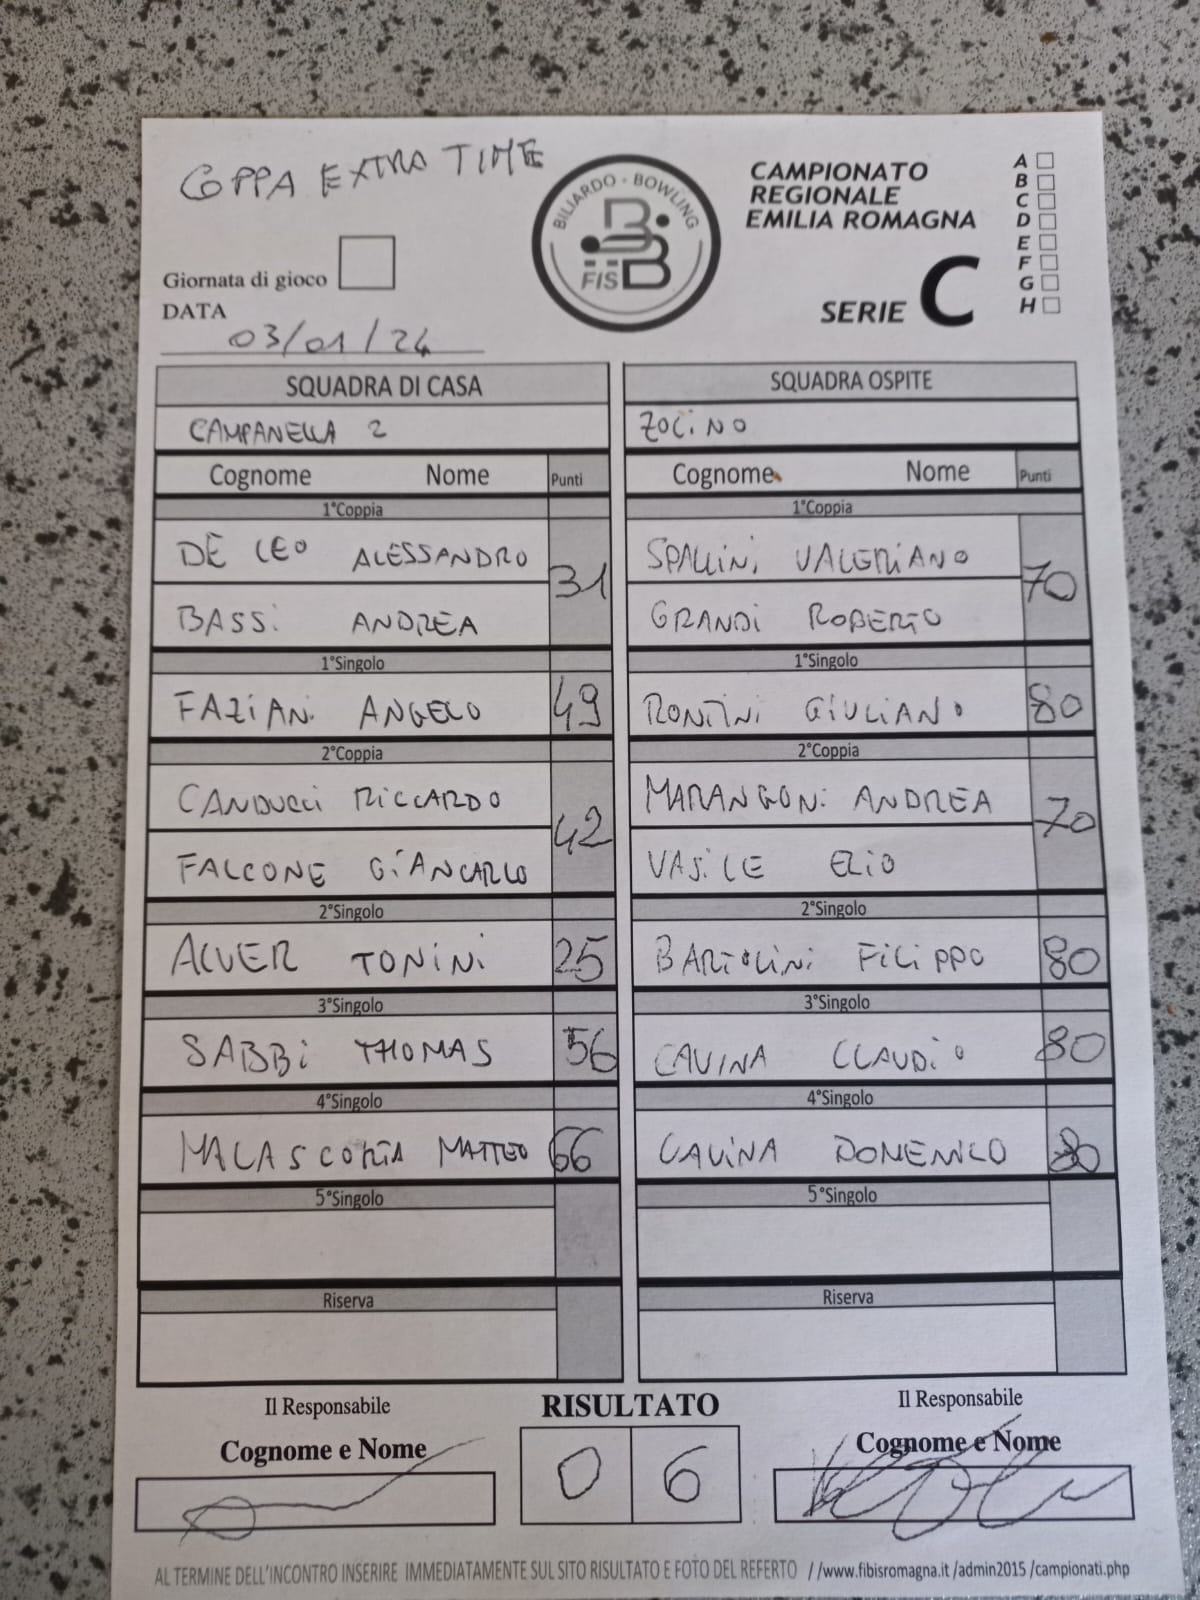 COPPA EXTRA TIME
BILIARDO - BOWLING
FISBB
CAMPIONATO
REGIONALE
EMILIA ROMAGNA
SERIE C
A
B
C
D
E
F
G
H
Giornata di gioco
DATA
03/01/24
SQUADRA DI CASA SQUADRA OSPITE
CAMPANELLA 2 ZOLINO
Cognome Nome Punti Cognome Nome Punti
1°Coppia 1°Coppia
DE LEO ALESSANDRO 31 SPALLINI VALERIANO 70
BASSI ANDREA GRANDI ROBERTO
1°Singolo 1°Singolo
FAZIANI ANGELO 49 RONTINI GIULIANO 80
2°Coppia 2°Coppia
CANDUCCI RICCARDO 42 MARANGONI ANDREA 70
FALCONE GIANCARLO VASILE ELIO
2°Singolo 2°Singolo
ALVER TONINI 25 BARTOLINI FILIPPO 80
3°Singolo 3°Singolo
SABBI THOMAS 56 CAVINA CLAUDIO 80
4°Singolo 4°Singolo
MALASCORTA MATTEO 66 CAVINA DOMENICO 80
5°Singolo 5°Singolo
Riserva Riserva
Il Responsabile RISULTATO Il Responsabile
Cognome e Nome 0 6 Cognome e Nome
AL TERMINE DELL'INCONTRO INSERIRE IMMEDIATAMENTE SUL SITO RISULTATO E FOTO DEL REFERTO //www.fibisromagna.it /admin2015 /campionati.php